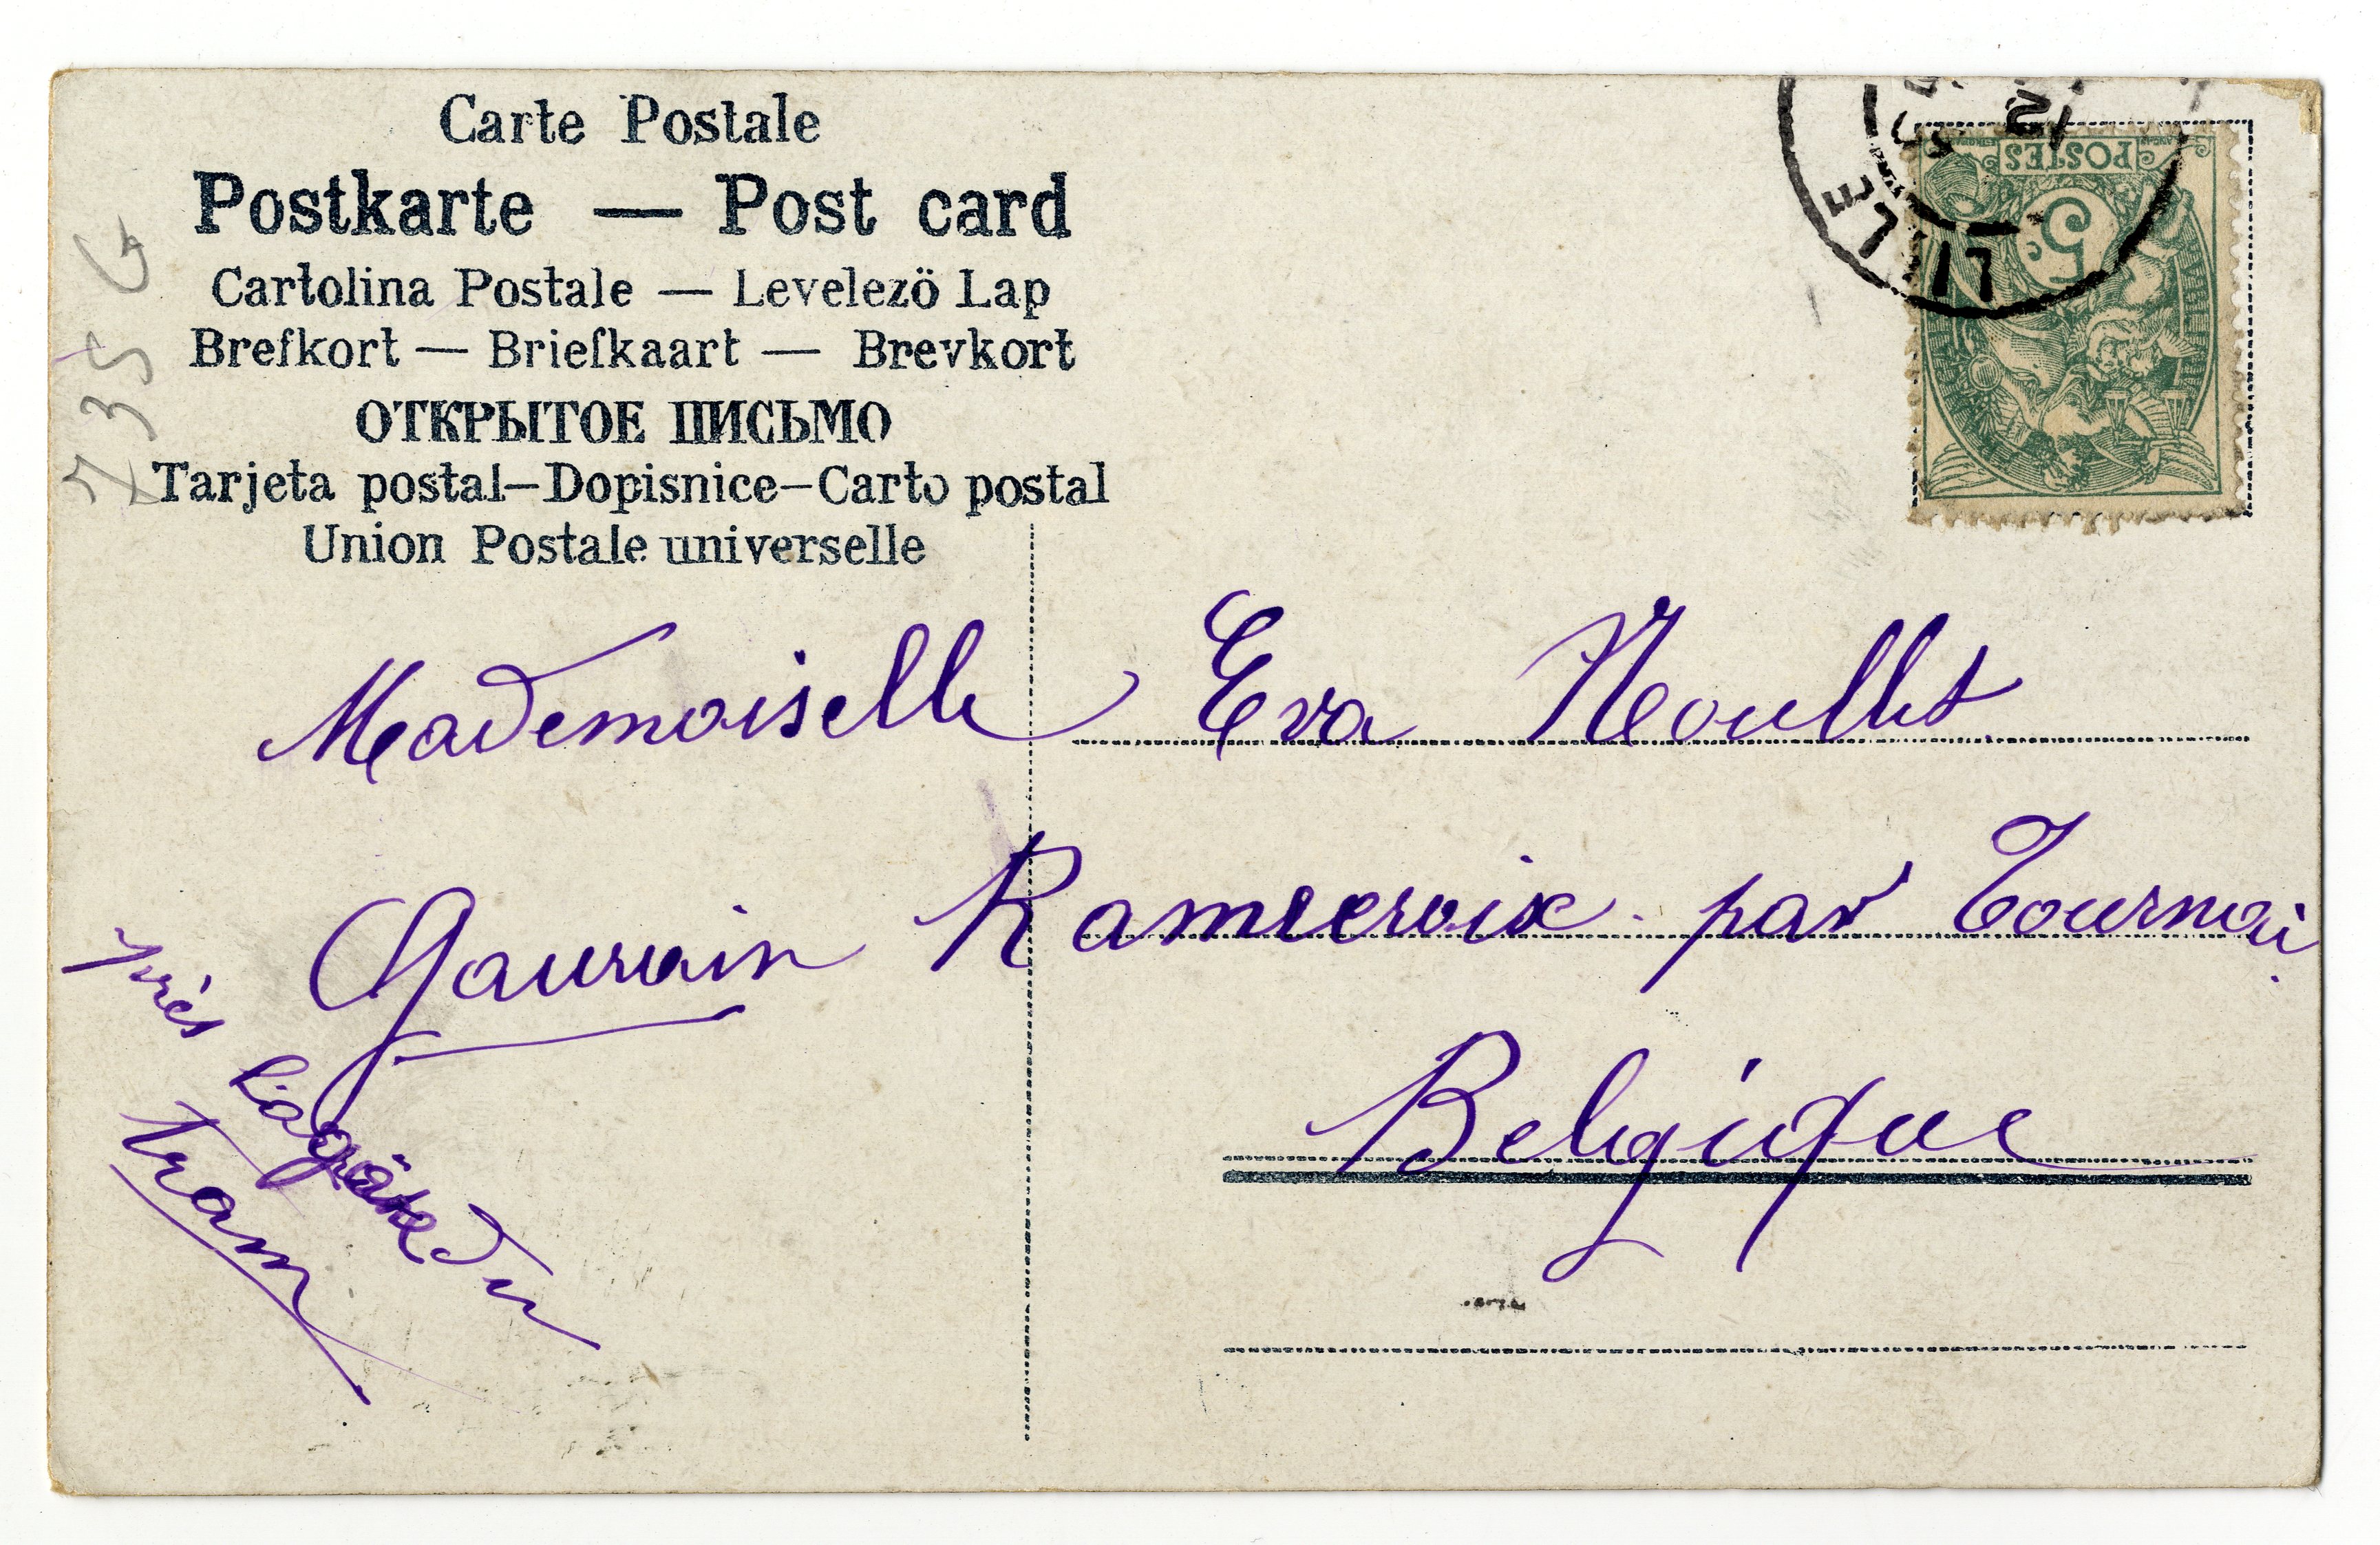 Carte Postale
Postkarte — Post card
Cartolina Postale — Levelezö Lap
Brefkort — Briefkaart — Brevkort
ОТКРЫТОЕ ПИСЬМО
Tarjeta postal—Dopisnice—Carto postal
Union Postale universelle
7356
POSTES
5c
LILLE
Mademoiselle Eva
Gaurain Ramecroix par Tournai
Belgique
près l'agrät du
tram